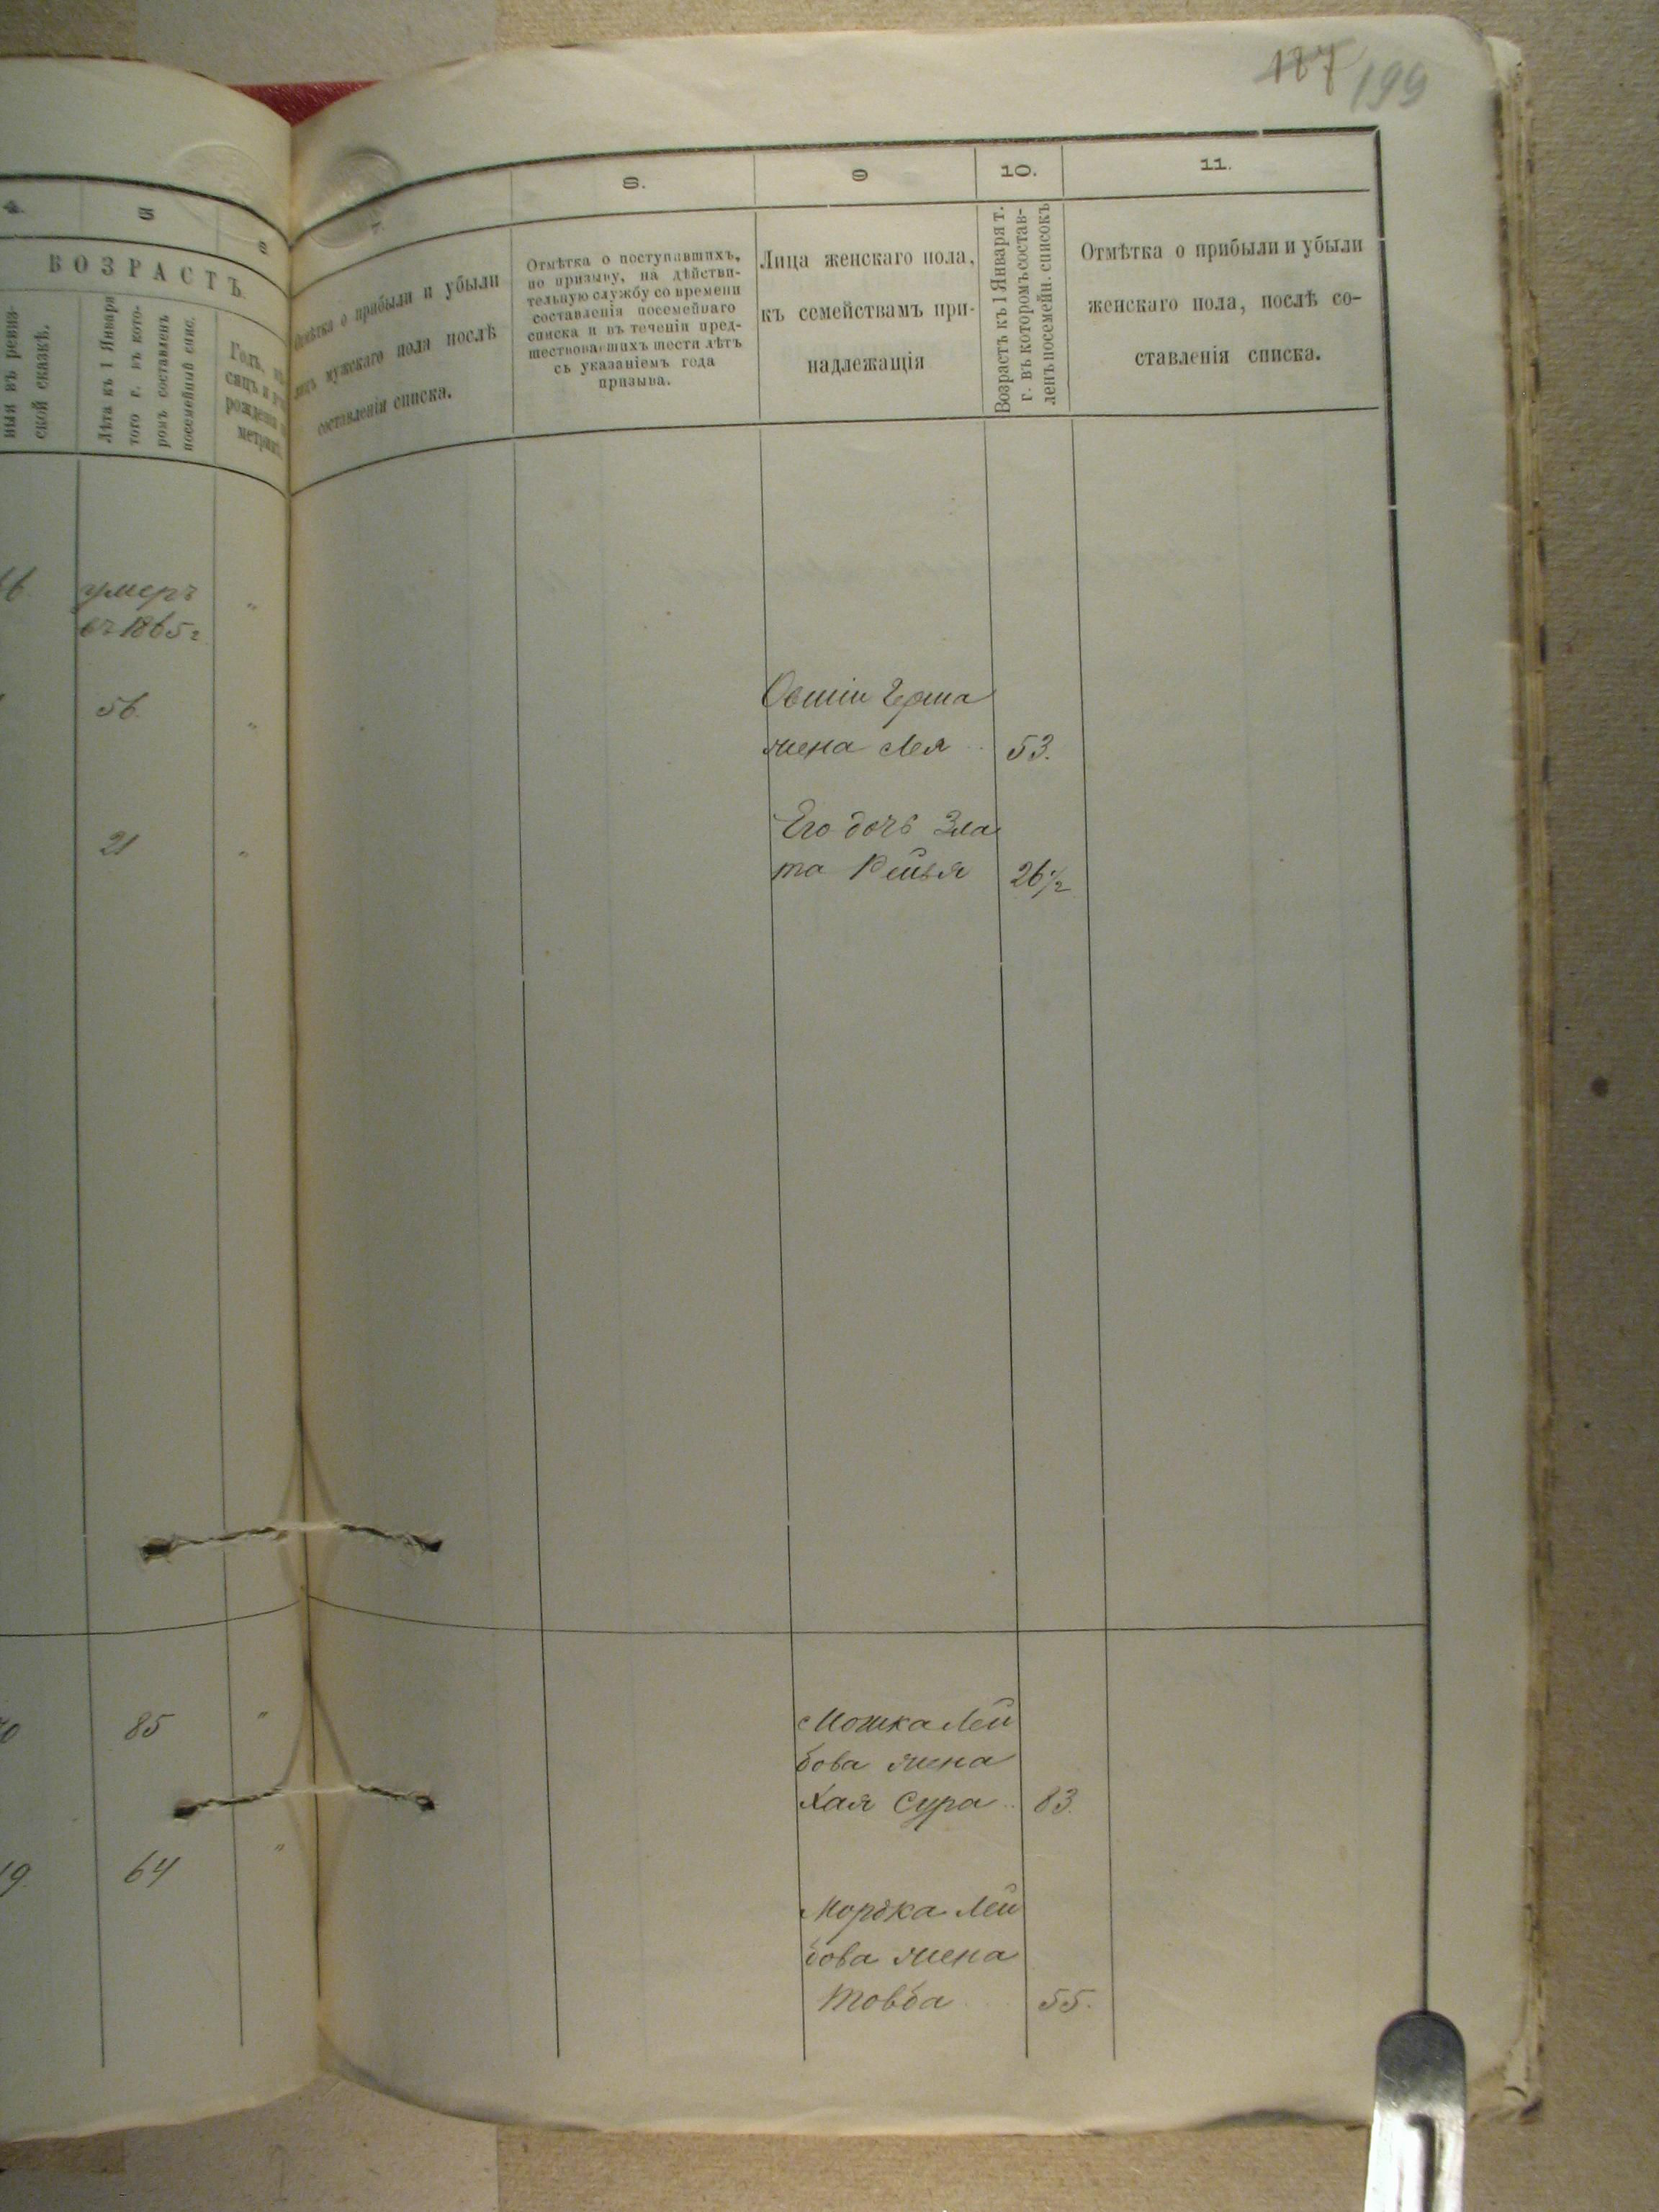 187 199
4.
5
6
ВОЗРАСТЪ.
ския въ ревиз-
ской сказкѣ.
Лѣта къ 1 Января
того г. въ кото-
ромъ составленъ
посемейный спис.
Годъ, мѣ-
рожденія
7.
8.
9
10.
11.
Отмѣтка о прибыли и убыли
лицъ мужскаго пола послѣ
составленія списка.
Отмѣтка о поступавшихъ,
по призыву, на дѣйстви-
тельную службу со времени
составленія посемейнаго
списка и въ теченіи пред-
шествовавшихъ шести лѣтъ
съ указаніемъ года
призыва.
Лица женскаго пола,
къ семействамъ при-
надлежащія
Возрастъ къ 1 Января т.
г. въ которомъ состав-
ленъ посемейн. списокъ
Отмѣтка о прибыли и убыли
женскаго пола, послѣ со-
ставленія списка.
умеръ
въ 1865 г
56.
21
Овшіи Герша
жена Лея 53.
Его дочь Зла
та Рейзя 26½
85
Мошка Лей
бова жена
Хая Сура 83.
64
Мордка Лей
бова жена
Товба 55.